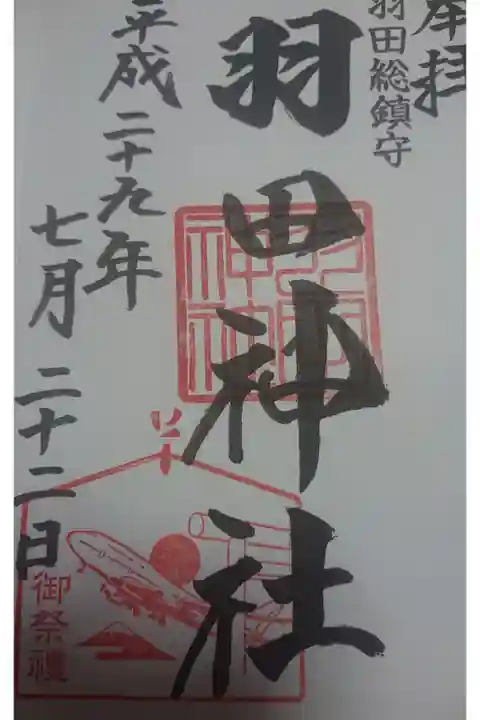 奉拝
羽田総鎮守
羽田神社
平成二十九年
七月二十二日
羽田神社
御祭禮